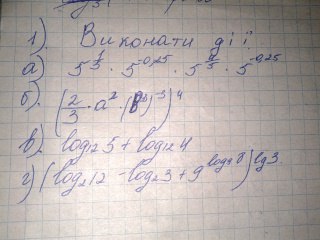 1). Виконати дії
а) 5^{1/5} · 5^{-0,25} · 5^{8/5} · 5^{-0,25}
б). (2/3 · a² · (b³)^{-3})⁴
в) log₁₂5 + log₁₂4
г) (log₂12 - log₂3 + 9^{log₉8})^{lg3}